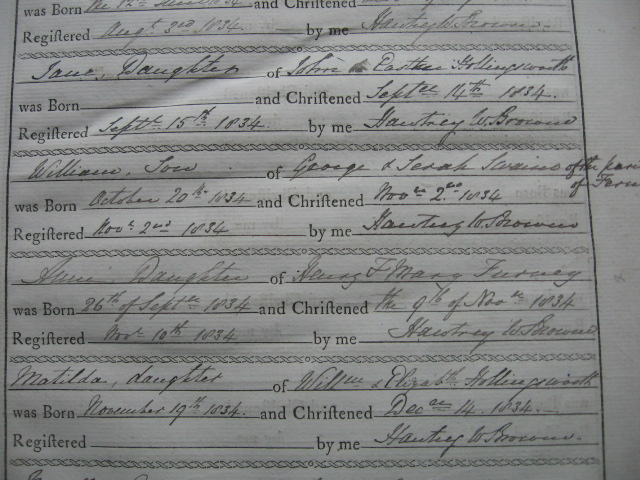 was Born the 12th and Christened
Registered Augst 3rd 1834 by me Hawtrey W Browne
Jane, Daughter of John & Easther Hollingsworth
was Born and Christened Septer 14th 1834.
Registered Septr 15th 1834. by me Hawtrey W Browne
William, Son of George & Serah Swaine of the
of
was Born October 20th 1834 and Christened Novr 2nd 1834
Registered Novr 2nd 1834 by me Hawtrey W Browne
Daughter of Henry & Mary Furney
was Born 26th of Septr 1834 and Christened the 9th of Novr 1834
Registered Novr 10th 1834 by me Hawtrey W Browne
Matilda, daughter of Willm & Elizabth Hollingsworth
was Born November 19th 1834. and Christened Decer 14. 1834.
Registered by me Hawtrey W Browne.